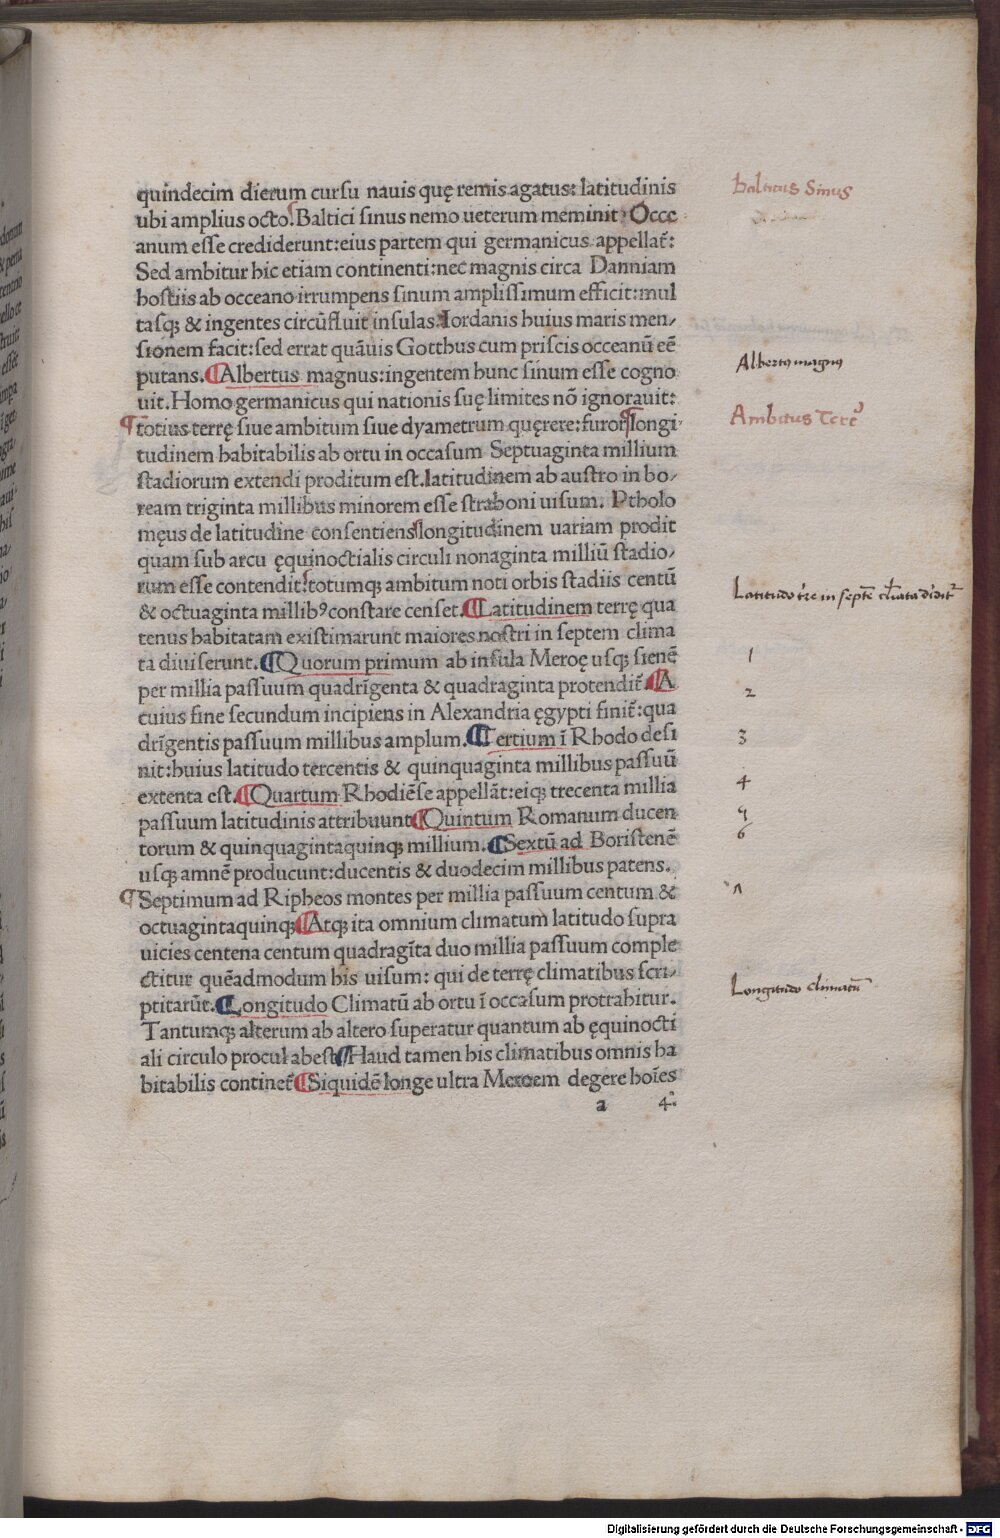 quindecim dierum cursu nauis quę remis agatus: latitudinis
ubi amplius octo. Baltici sinus nemo ueterum meminit: Occe
anum esse crediderunt: eius partem qui germanicus appellat̄:
Sed ambitur hic etiam continenti: nec magnis circa Danniam
hostiis ab occeano irrumpens sinum amplissimum efficit: mul
tasq; & ingentes circūfluit insulas. Iordanis huius maris men/
sionem facit: sed errat quāuis Gotthus cum priscis occeanū eē
putans. Albertus magnus: ingentem hunc sinum esse cogno
uit. Homo germanicus qui nationis suę limites nō ignorauit:
totius terrę siue ambitum siue dyametrum quęrere: furor longi
tudinem habitabilis ab ortu in occasum Septuaginta millium
stadiorum extendi proditum est. latitudinem ab austro in bo/
ream triginta millibus minorem esse straboni uisum. Ptholo
męus de latitudine consentiens longitudinem uariam prodit
quam sub arcu ęquinoctialis circuli nonaginta milliū stadio/
rum esse contendit: totumq; ambitum noti orbis stadiis centū
& octuaginta millibꝰ constare censet. Latitudinem terrę qua
tenus habitatam existimarunt maiores nostri in septem clima
ta diuiserunt. Quorum primum ab insula Meroę usq; sienē
per millia passuum quadrīgenta & quadraginta protendit̄. A
cuius fine secundum incipiens in Alexandria ęgypti finit̄: qua
drīgentis passuum millibus amplum. Tertium ī Rhodo desi
nit: huius latitudo tercentis & quinquaginta millibus passuū
extenta est. Quartum Rhodiēse appellāt: eiq; trecenta millia
passuum latitudinis attribuunt Quintum Romanum ducen
torum & quinquagintaquinq; millium. Sextū ad Boristenē
usq; amnē producunt: ducentis & duodecim millibus patens.
Septimum ad Ripheos montes per millia passuum centum &
octuagintaquinq; Atq; ita omnium climatum latitudo supra
uicies centena centum quadragīta duo millia passuum comple
ctitur quēadmodum his uisum: qui de terrę climatibus scri/
ptitarūt. Longitudo Climatū ab ortu ī occasum protrahitur.
Tantumq; alterum ab altero superatur quantum ab ęquinocti
ali circulo procul abest Haud tamen his climatibus omnis ha
bitabilis continet̄ Siquidē longe ultra Meroem degere hoīes
a 4
balticus Sinus
Albertus magnus
Ambitus Terre
1
2
3
4
5
6
Longitudo climatū
Digitalisierung gefördert durch die Deutsche Forschungsgemeinschaft - DFG